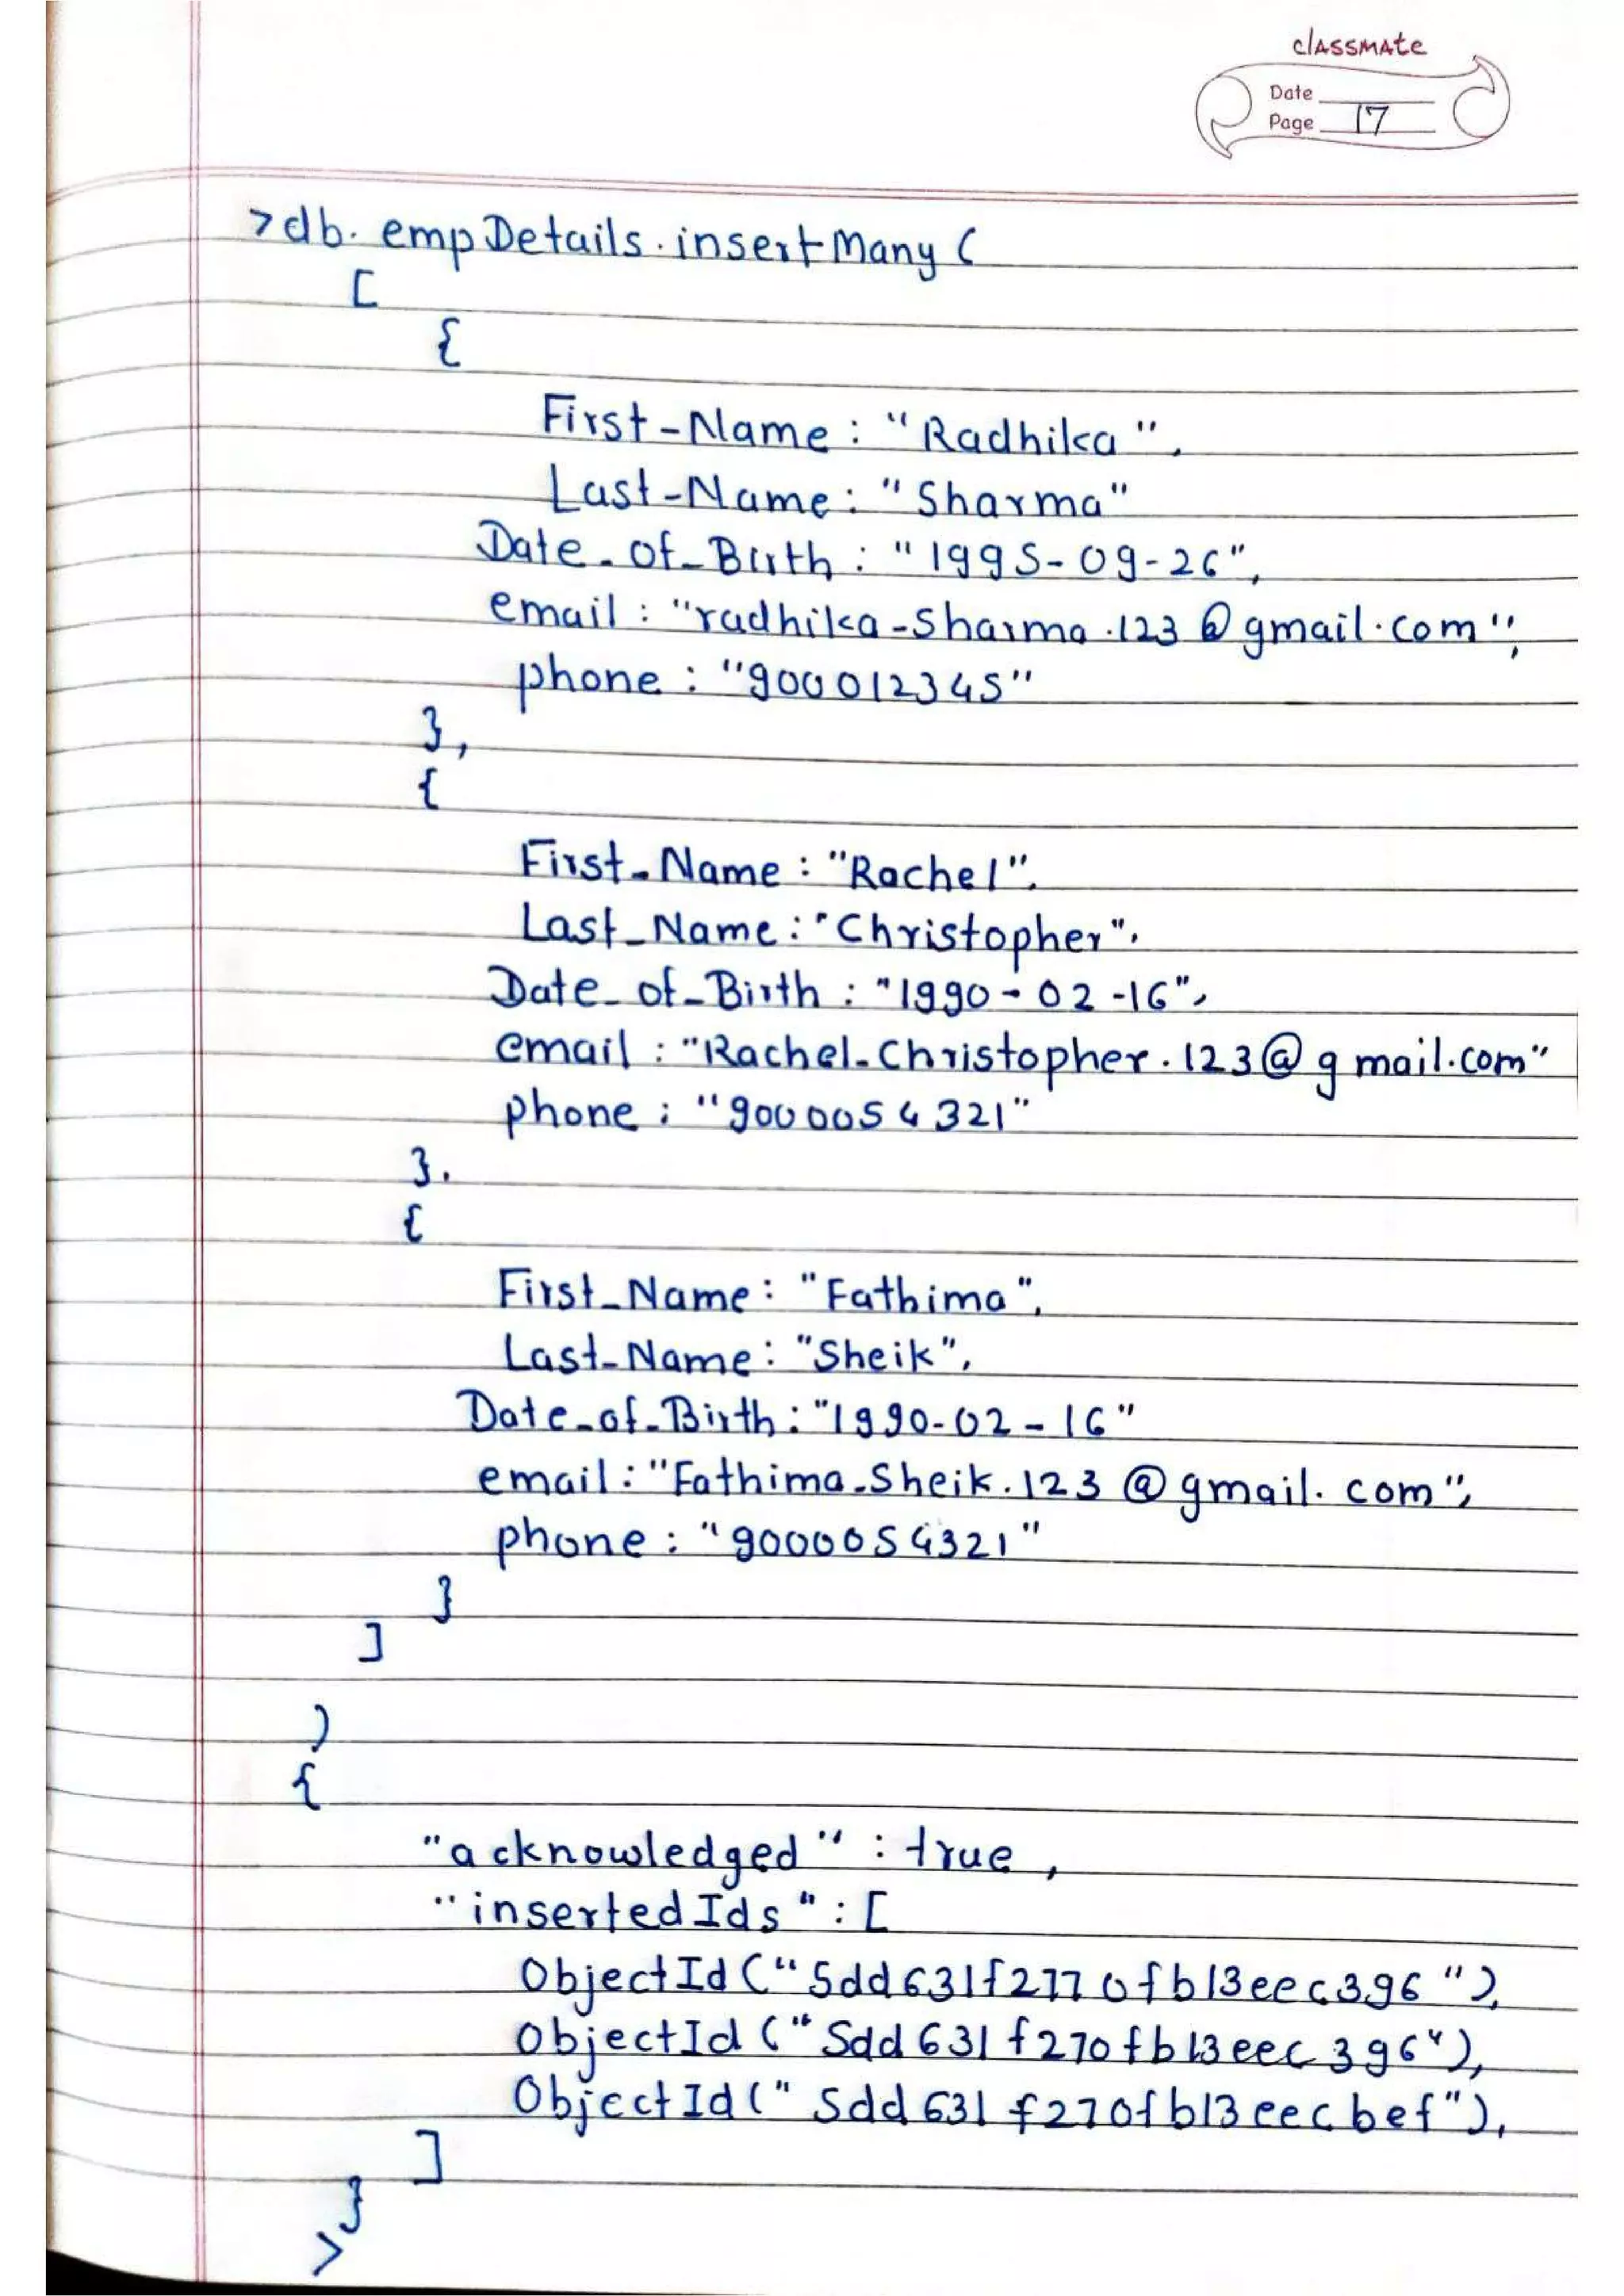 classmate
Date
Page 17
>db. empDetails.insertMany (
[
{
First-Name : "Radhika",
Last-Name : "Sharma"
Date-of-Birth : "1995-09-26",
email : "radhika-Sharma.123@gmail.com",
phone : "900012345"
},
{
First-Name : "Rachel",
Last_Name : "Christopher",
Date_of_Birth : "1990-02-16",
email : "Rachel-Christopher.123@gmail.com"
phone : "9000054321"
},
{
First_Name : "Fathima",
Last-Name : "Sheik",
Date-of-Birth : "1990-02-16"
email : "Fathima.Sheik.123@gmail.com",
phone : "9000054321"
}
]
)
{
"acknowledged" : true,
"insertedIds" : [
ObjectId ("5dd631f2770fb13eec396"),
ObjectId ("5dd631f270fb13eec396"),
ObjectId ("5dd631f270fb13eecbef"),
]
}
>